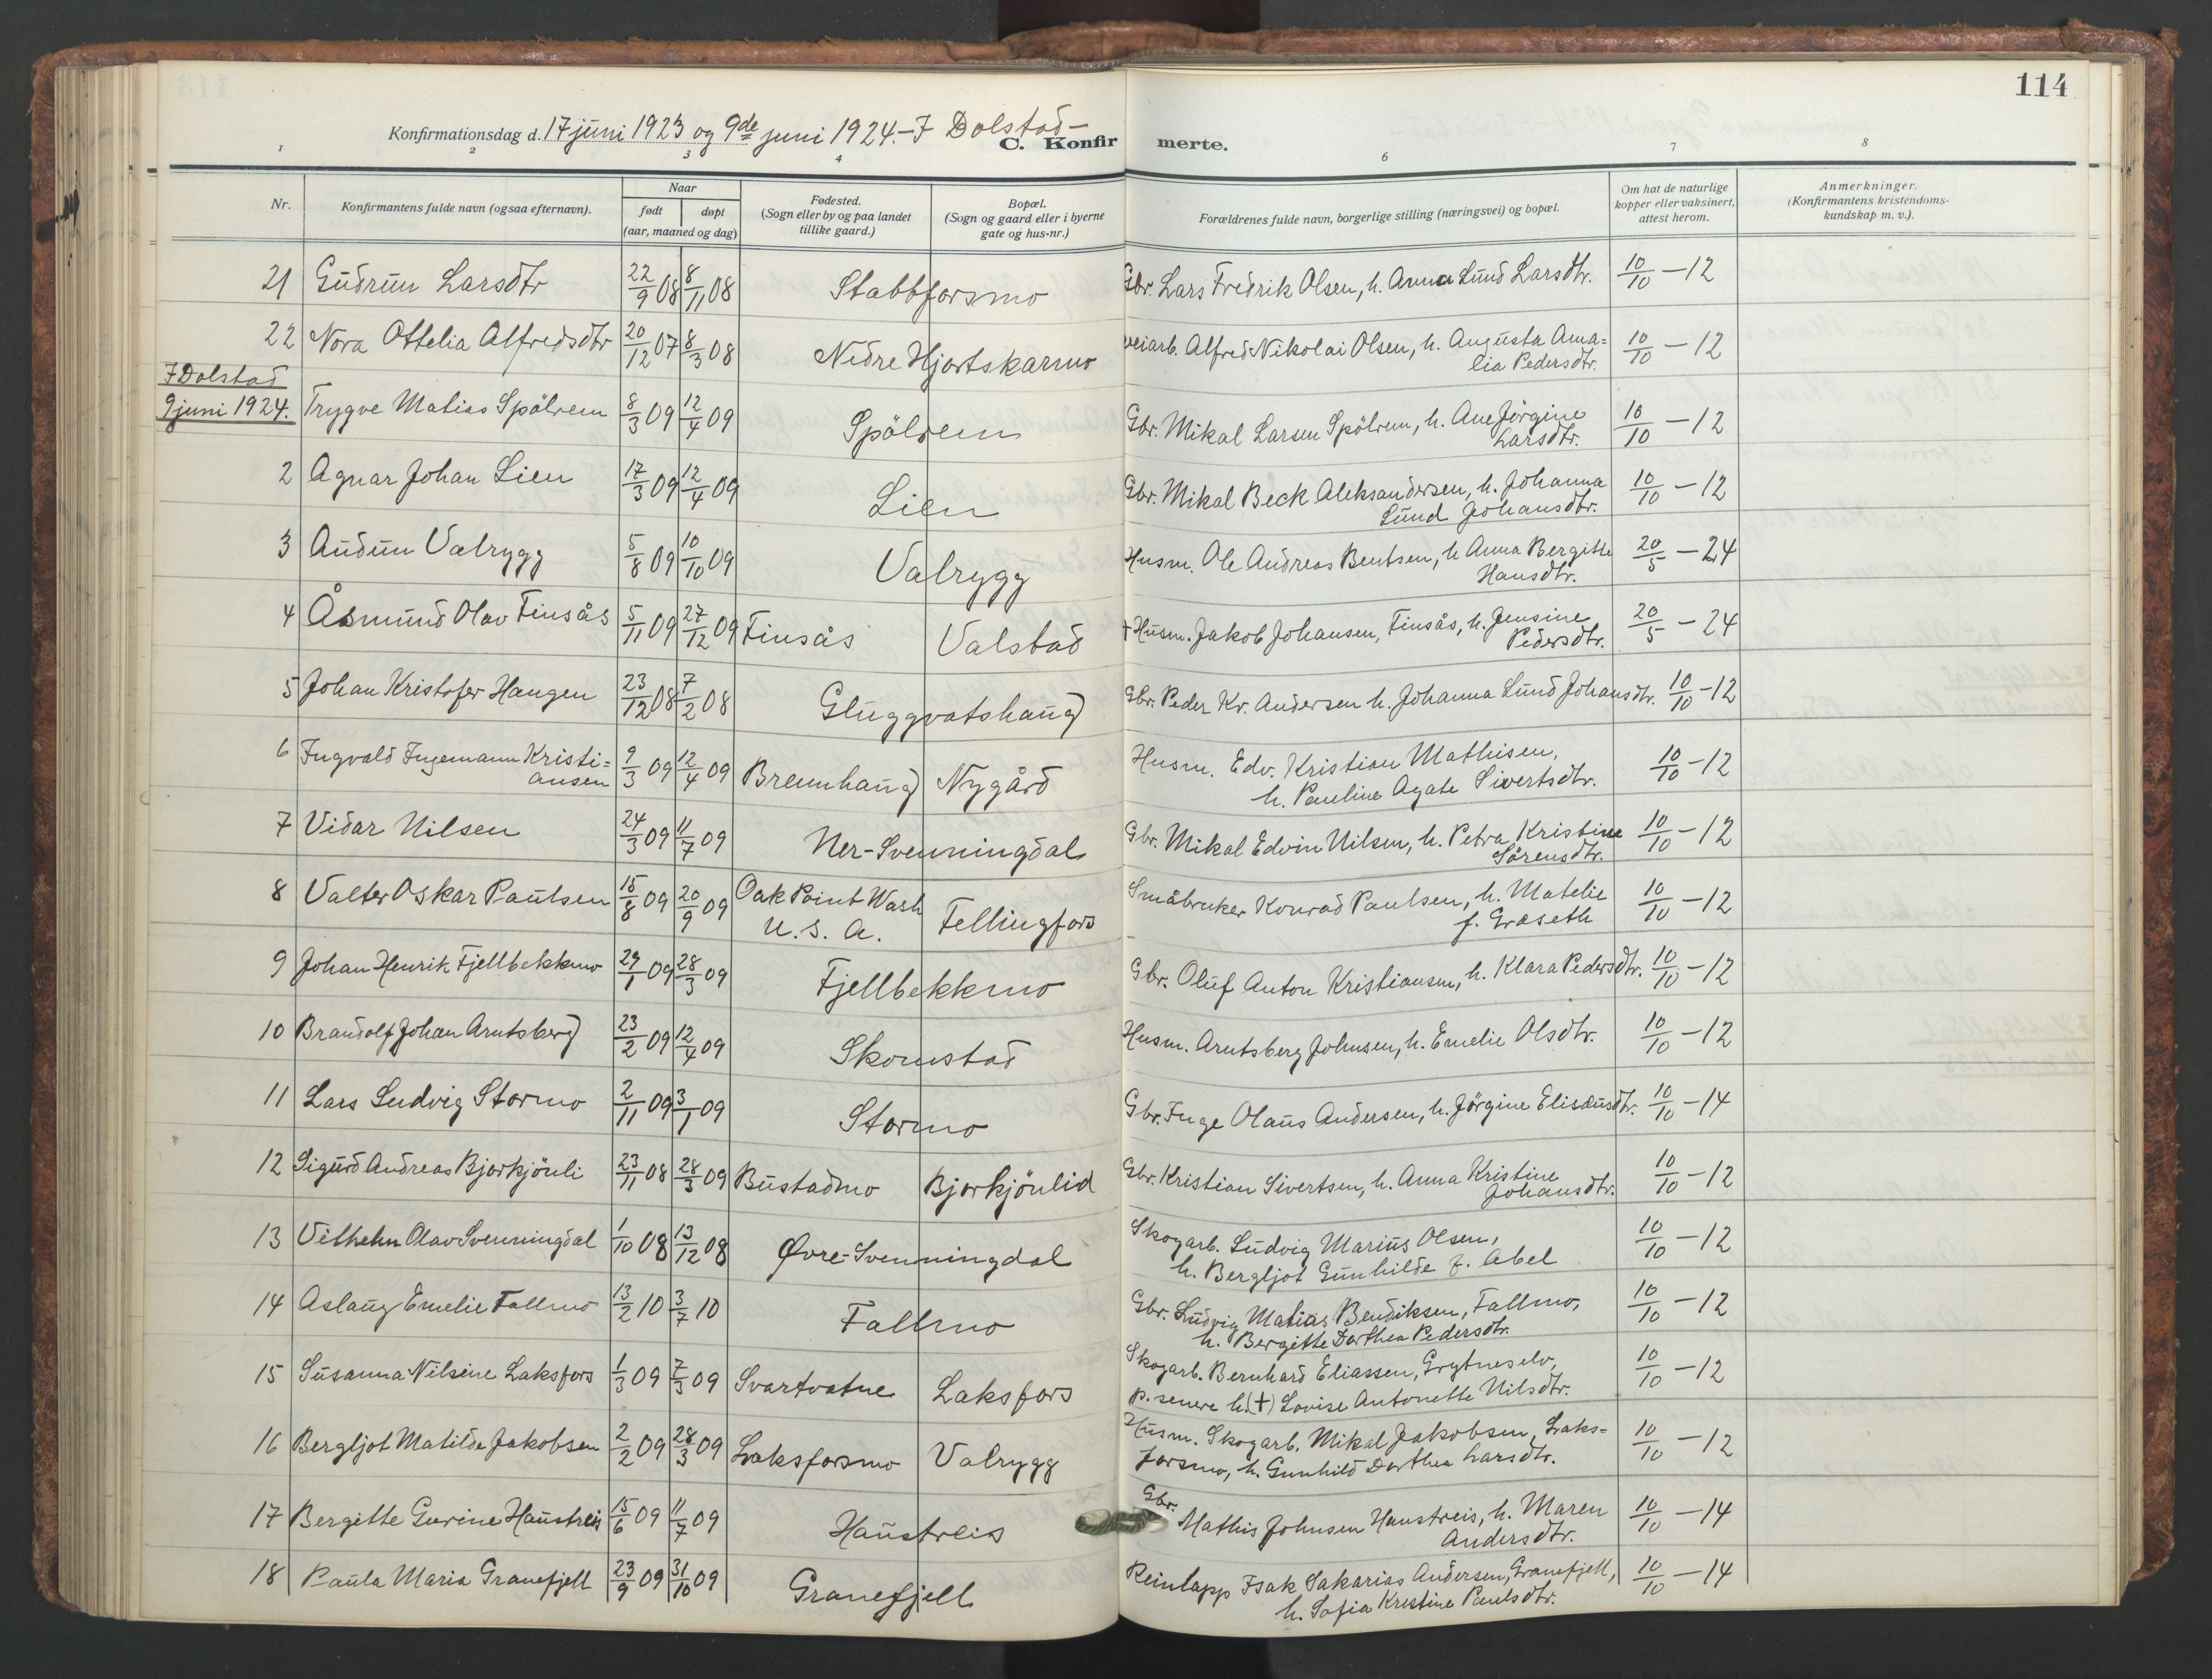 114
Konfirmationsdag d. 17 juni 1923 og 9de juni 1924. - I Dolstad -
C. Konfirmerte.
1 2 3 4 6 7 8
Nr. | Konfirmantens fulde navn (ogsaa efternavn). | Naar født | døpt (aar, maaned og dag) | Fødested. (Sogn eller by og paa landet tillike gaard.) | Bopæl. (Sogn og gaard eller i byerne gate og hus-nr.) | Forældrenes fulde navn, borgerlige stilling (næringsvei) og bopæl. | Om hat de naturlige kopper eller vaksinert, attest herom. | Anmerkninger. (Konfirmantens kristendomskundskap m. v.).
21 Gudrun Larsdtr 22/9 08 8/11 08 Stabbforsmo Gbr. Lars Fredrik Olsen, h. Anna Lund Larsdtr. 10/10 - 12
22 Nora Ottelia Alfredsdtr 20/12 07 8/3 08 Nedre Hjortskarmo veiarb. Alfred Nikolai Olsen, h. Augusta Ama=
lia Pedersdtr. 10/10 - 12
I Dolstad
9 juni 1924. Trygve Matias Spölrem 8/3 09 12/4 09 Spölrem Gbr. Mikal Larsen Spölrem, h. Ane Jörgine
Larsdtr. 10/10 - 12
2 Agnar Johan Lien 17/3 09 12/4 09 Lien Gbr. Mikal Beck Aleksandersen, h. Johanna
Lund Johansdtr. 10/10 - 12
3 Audun Valrygg 5/8 09 10/10 09 Valrygg Husm. Ole Andreas Bentsen, h. Anna Bergitte
Hansdtr. 20/5 - 24
4 Åsmund Olav Finsås 5/11 09 27/12 09 Finsås Valstad + Husm. Jakob Johansen, Finsås, h. Jensine
Pedersdtr. 20/5 - 24
5 Johan Kristofer Haugen 23/12 08 7/2 08 Gluggvatshaug Gbr. Peder Kr. Andersen h. Johanna Lund Johansdtr. 10/10 - 12
6 Ingvald Ingemann Kristi=
ansen 9/3 09 12/4 09 Brennhaug Nygård Husm. Edv. Kristian Mathisen,
h. Pauline Agate Sivertsdtr. 10/10 - 12
7 Vidar Nilsen 24/3 09 11/7 09 Ner-Svenningdal Gbr. Mikal Edvin Nilsen, h. Petra Kristine
Sörensdtr. 10/10 - 12
8 Valter Oskar Paulsen 15/8 09 20/9 09 Oak Point Wash
U. S. A. Fellingfors Småbruker Konrad Paulsen, h. Matelie
f. Græseth 10/10 - 12
9 Johan Henrik Fjellbekkmo 29/1 09 28/3 09 Fjellbekkmo Gbr. Oluf Anton Kristiansen, h. Klara Pedersdtr. 10/10 - 12
10 Brandolf Johan Arntsberg 23/2 09 12/4 09 Skomstad Husm. Arntsberg Johnsen, h. Emelie Olsdtr. 10/10 - 12
11 Lars Ludvig Stormo 2/11 09 3/1 09 Stormo Gbr. Inge Olaus Andersen, h. Jörgine Elisæusdtr. 10/10 - 14
12 Sigurd Andreas Bjorkjönli 23/11 08 28/3 09 Bustadmo Bjorkjönlid Gbr. Kristian Sivertsen, h. Anna Kristine
Johansdtr. 10/10 - 12
13 Vilhelm Olav Svenningdal 1/10 08 13/12 08 Øvre-Svenningdal Skogarb. Ludvig Marius Olsen,
h. Bergljot Gunhilde f. Abel 10/10 - 12
14 Aslaug Emelie Fallmo 13/2 10 3/7 10 Fallmo Gbr. Ludvig Matias Bendiksen, Fallmo,
h. Bergitte Dorthea Pedersdtr. 10/10 - 12
15 Susanna Nilsine Laksfors 1/3 09 7/3 09 Svartvatne Laksfors Skogarb. Bernhard Eliassen, Grytneselv,
p. senere h. (+) Lovise Antonette Nilsdtr. 10/10 - 12
16 Bergljot Matilde Jakobsen 2/2 09 28/3 09 Laksforsmo Valrygg Husm. Skogarb. Mikal Jakobsen, Laks=
forsmo, h. Gunhild Dorthea Larsdtr. 10/10 - 12
17 Bergitte Gurine Haustreis 15/6 09 11/7 09 Haustreis Gbr. Mathis Johnsen Haustreis, h. Maren
Andersdtr. 10/10 - 14
18 Paula Maria Granefjell 23/9 09 31/10 09 Granefjell Reinlapp Isak Sakarias Andersen, Granefjell,
h. Sofia Kristine Paulsdtr. 10/10 - 14